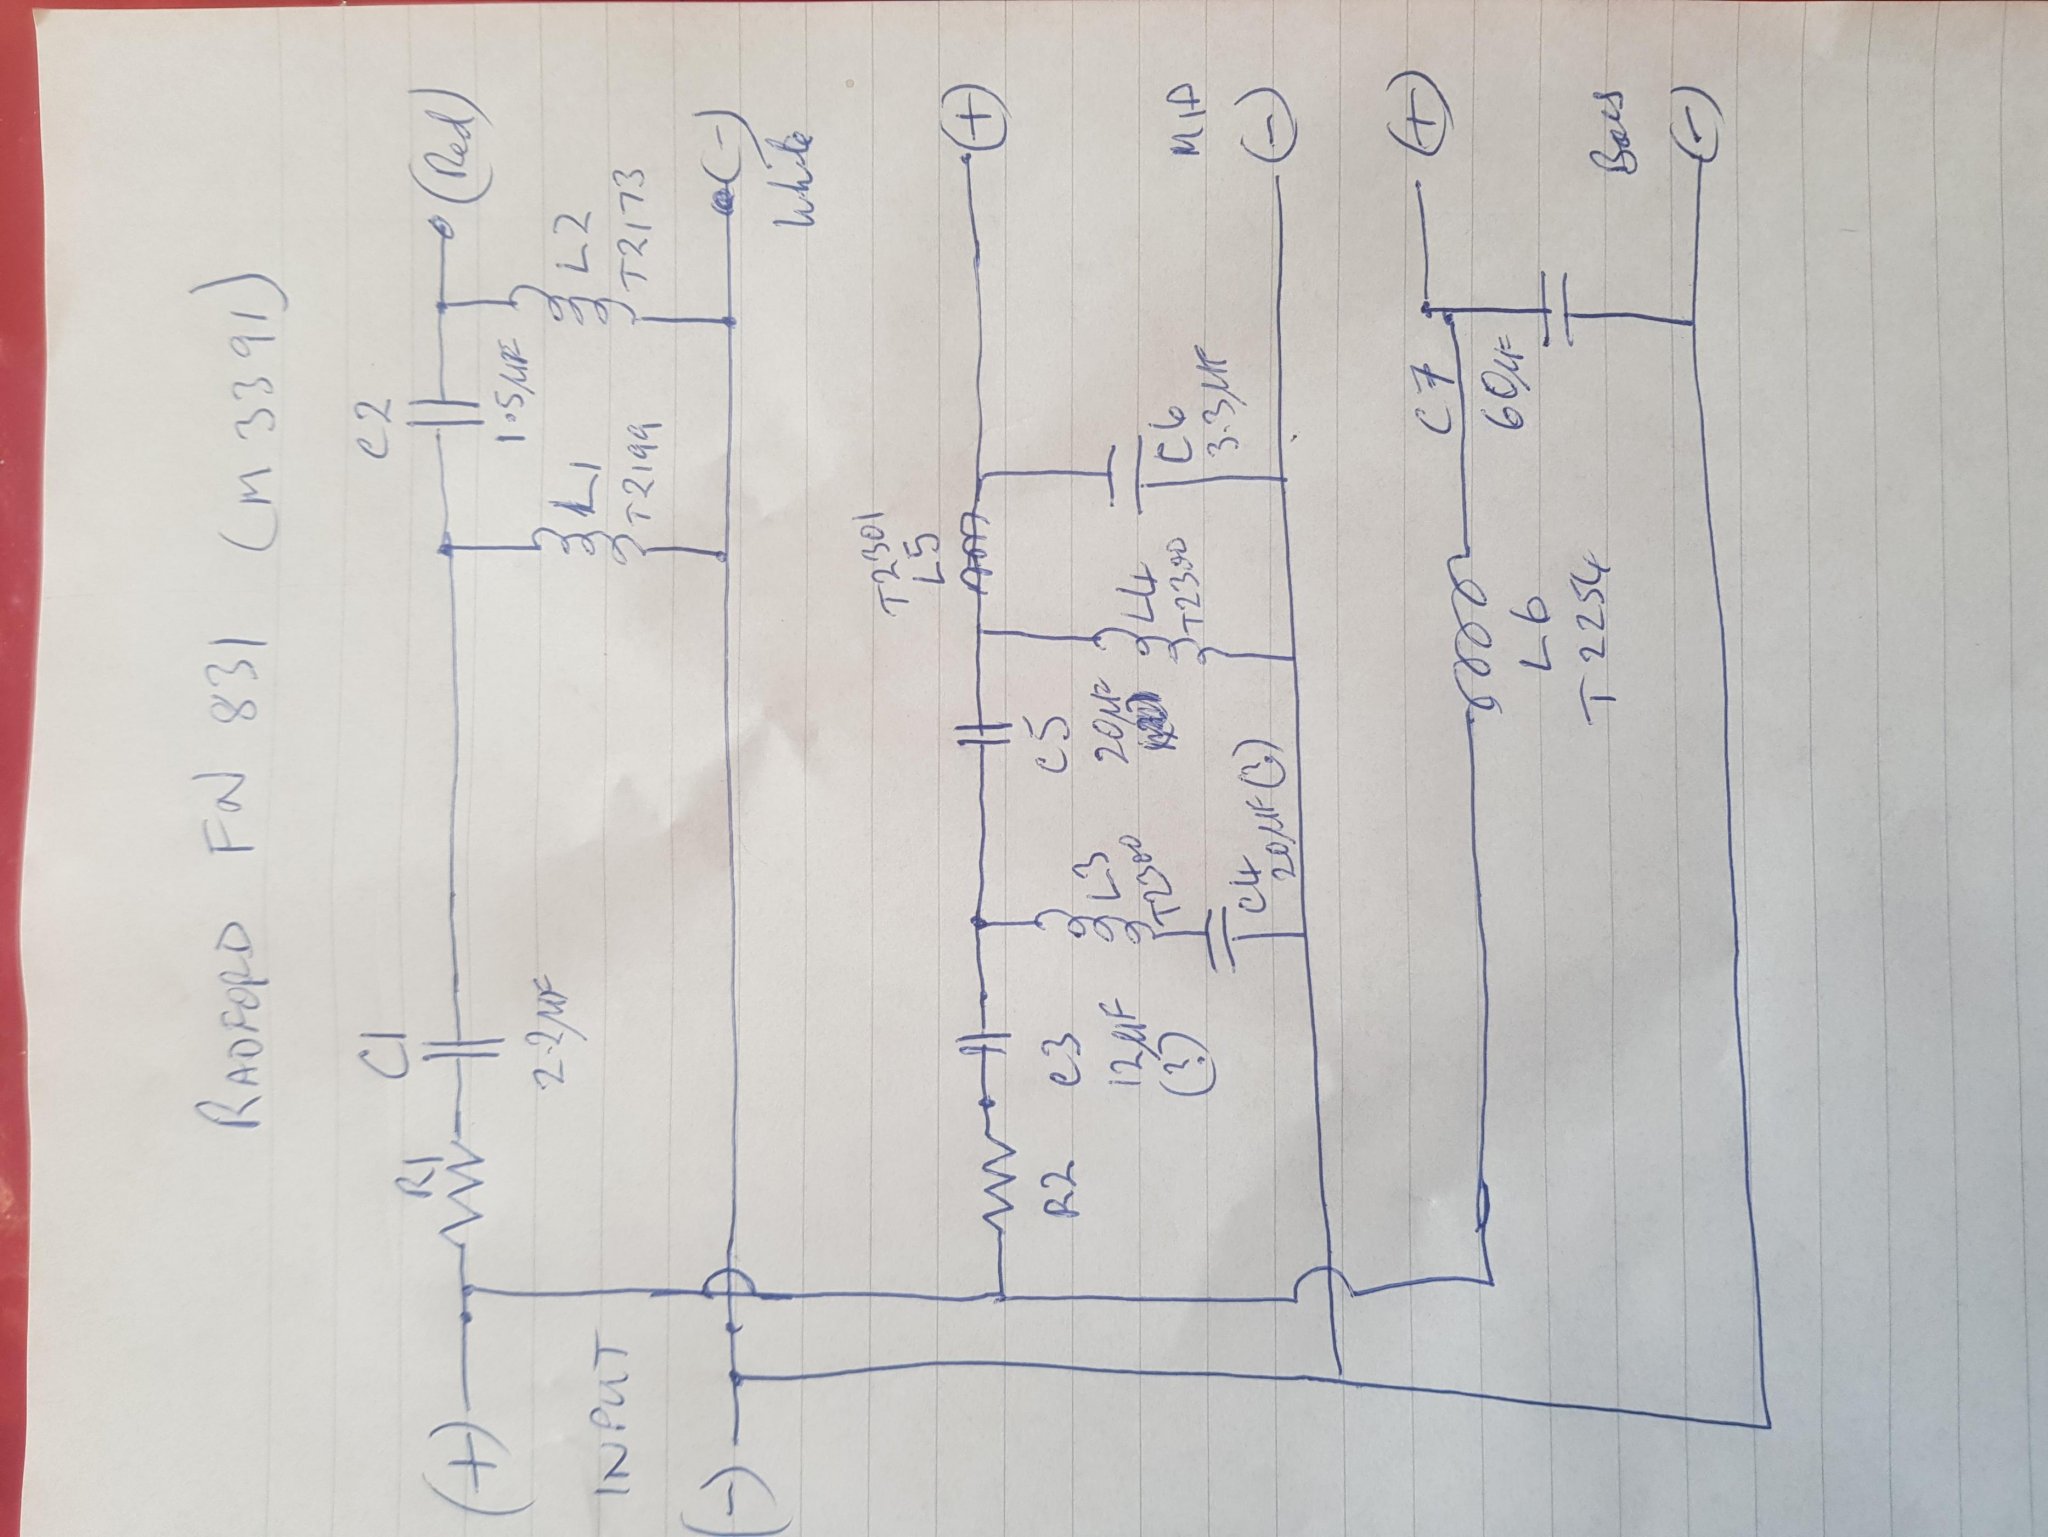 RADFORD FN 831 (M3391)
R1
C1
2.2µF
C2
1.5µF
(Red)
L1
T2199
L2
T2173
(+)
INPUT
(-)
(-)
White
R2
C3
12µF
(?)
L3
T2300
C4
20µF(?)
C5
20µF
L4
T2300
T2301
L5
C6
3.3µF
(+)
MID
(-)
L6
T2254
C7
60µF
(+)
Bass
(-)